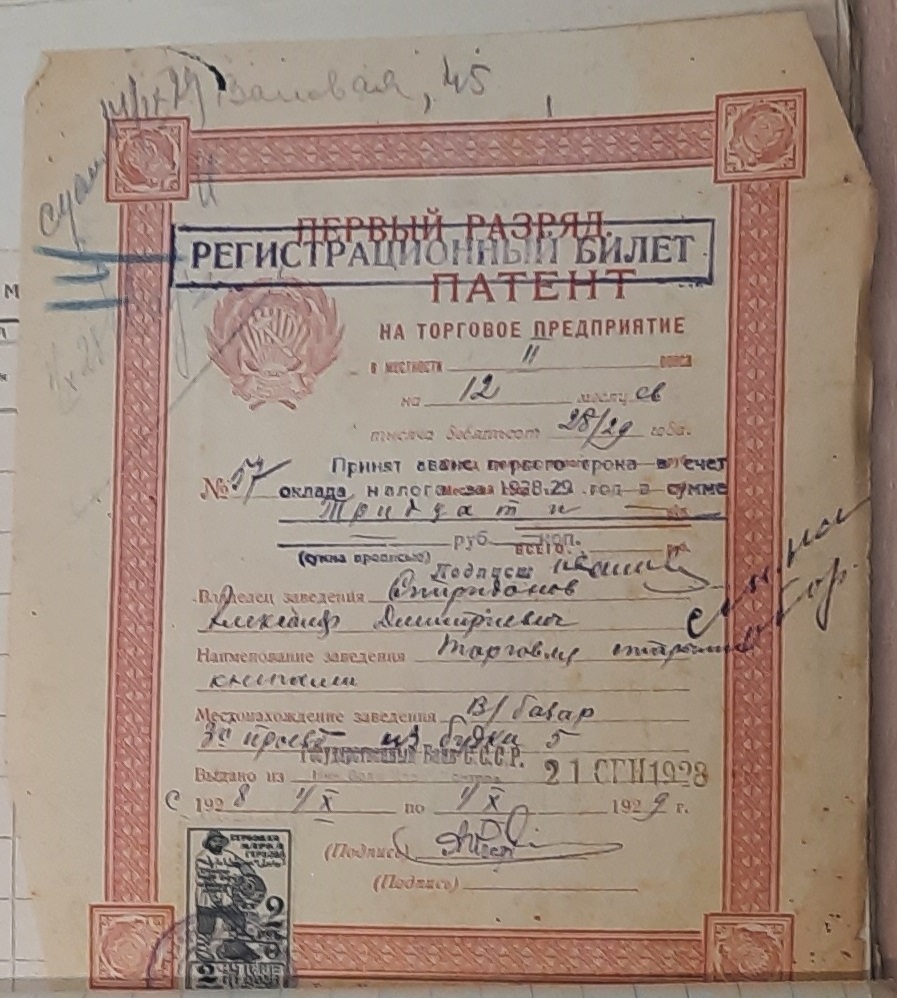 Валовая, 45
ПЕРВЫЙ РАЗРЯД.
РЕГИСТРАЦИОННЫЙ БИЛЕТ
ПАТЕНТ
НА ТОРГОВОЕ ПРЕДПРИЯТИЕ
в местности II пояса
на 12 месяцев
тысяча девятьсот 28/29 года.
Принят аванс первого срока в счет
№ 57 оклада налога за 1928-29 год в сумме
Тридцати
руб. коп.
(сумма прописью) ВСЕГО: руб.
Подпись
Владелец заведения Спиридонов
Александр Димитриевич
Наименование заведения Торговля старыми
книгами
Местонахождение заведения В/базар
из будки 5
Государственный Банк С.С.С.Р.
Выдано из 21 СЕН 1928
С 1928 1/X по 1/X 1929 г.
(Подпись)
(Подпись)
2
2